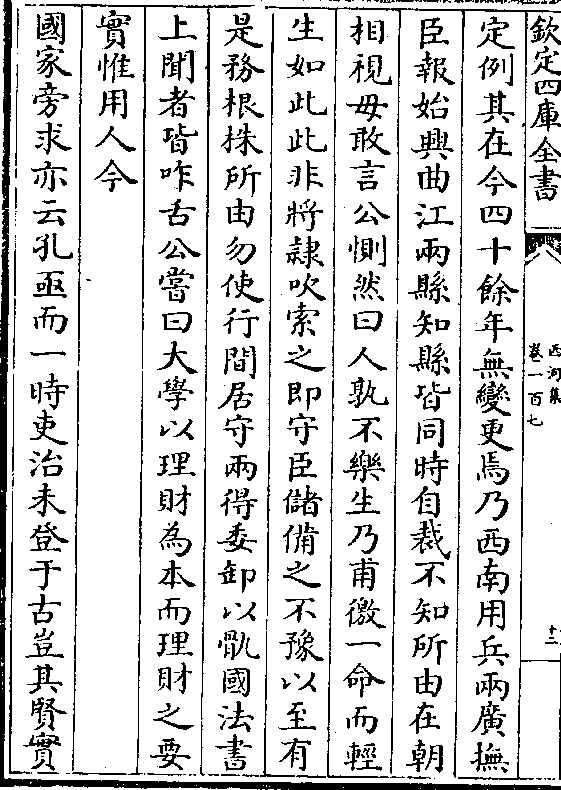 欽定四庫全書
西河集
卷一百七
十三
定例其在今四十餘年無變更焉乃西南用兵兩廣撫
臣報始興曲江兩縣知縣皆同時自裁不知所由在朝
相視毋敢言公惻然曰人孰不樂生乃甫徼一命而輕
生如此此非將隷吹索之即守臣儲備之不豫以至有
是務根株所由勿使行間居守兩得委卸以骫國法書
上聞者皆咋舌公嘗曰大學以理財為本而理財之要
實惟用人今
國家旁求亦云孔亟而一時吏治未登于古豈其賢實